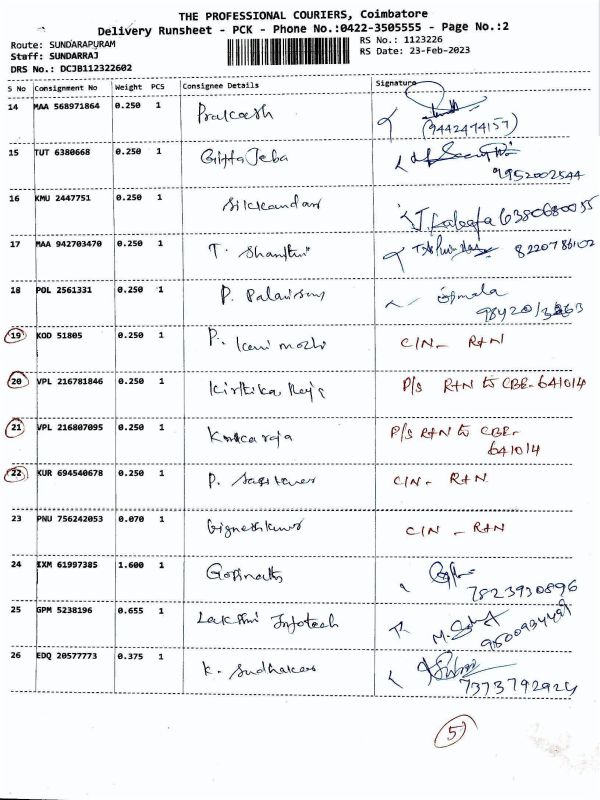 THE PROFESSIONAL COURIERS, Coimbatore
Delivery Runsheet - PCK - Phone No.:0422-3505555 - Page No.:2
Route: SUNDARAPURAM RS No.: 1123226
Staff: SUNDARRAJ RS Date: 23-Feb-2023
DRS No.: DCJB112322602
S No Consignment No Weight PCS Consignee Details Signature
14 MAA 568971864 0.250 1 Prakash
(9442474157)
15 TUT 6380668 0.250 1 Gipta Jeba
9952002544
16 KMU 2447751 0.250 1 Sikkandar
6380680055
17 MAA 942703470 0.250 1 T. Shanthi 8220786102
18 POL 2561331 0.250 1 P.
19 KOD 51805 0.250 1 P. Kani mozhi C/N - R+N
20 VPL 216781846 0.250 1 Kirthika P/s R+N to CBE-641014
21 VPL 216807095 0.250 1 P/s R+N to CBE-
641014
22 KUR 694540678 0.250 1 P. C/N - R+N
23 PNU 756242053 0.070 1 C/N - R+N
24 IXM 61997385 1.600 1 Gopinath
7823930896
25 GPM 5238196 0.655 1 Lakshmi Infotech
26 EDQ 20577773 0.375 1 K. Sudhakar
7373792924
5